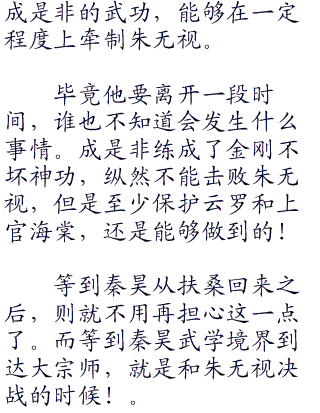 成是非的武功，能够在一定
程度上牵制朱无视。
毕竟他要离开一段时
间，谁也不知道会发生什么
事情。成是非练成了金刚不
坏神功，纵然不能击败朱无
视，但是至少保护云罗和上
官海棠，还是能够做到的！
等到秦昊从扶桑回来之
后，则就不用再担心这一点
了。而等到秦昊武学境界到
达大宗师，就是和朱无视决
战的时候！。